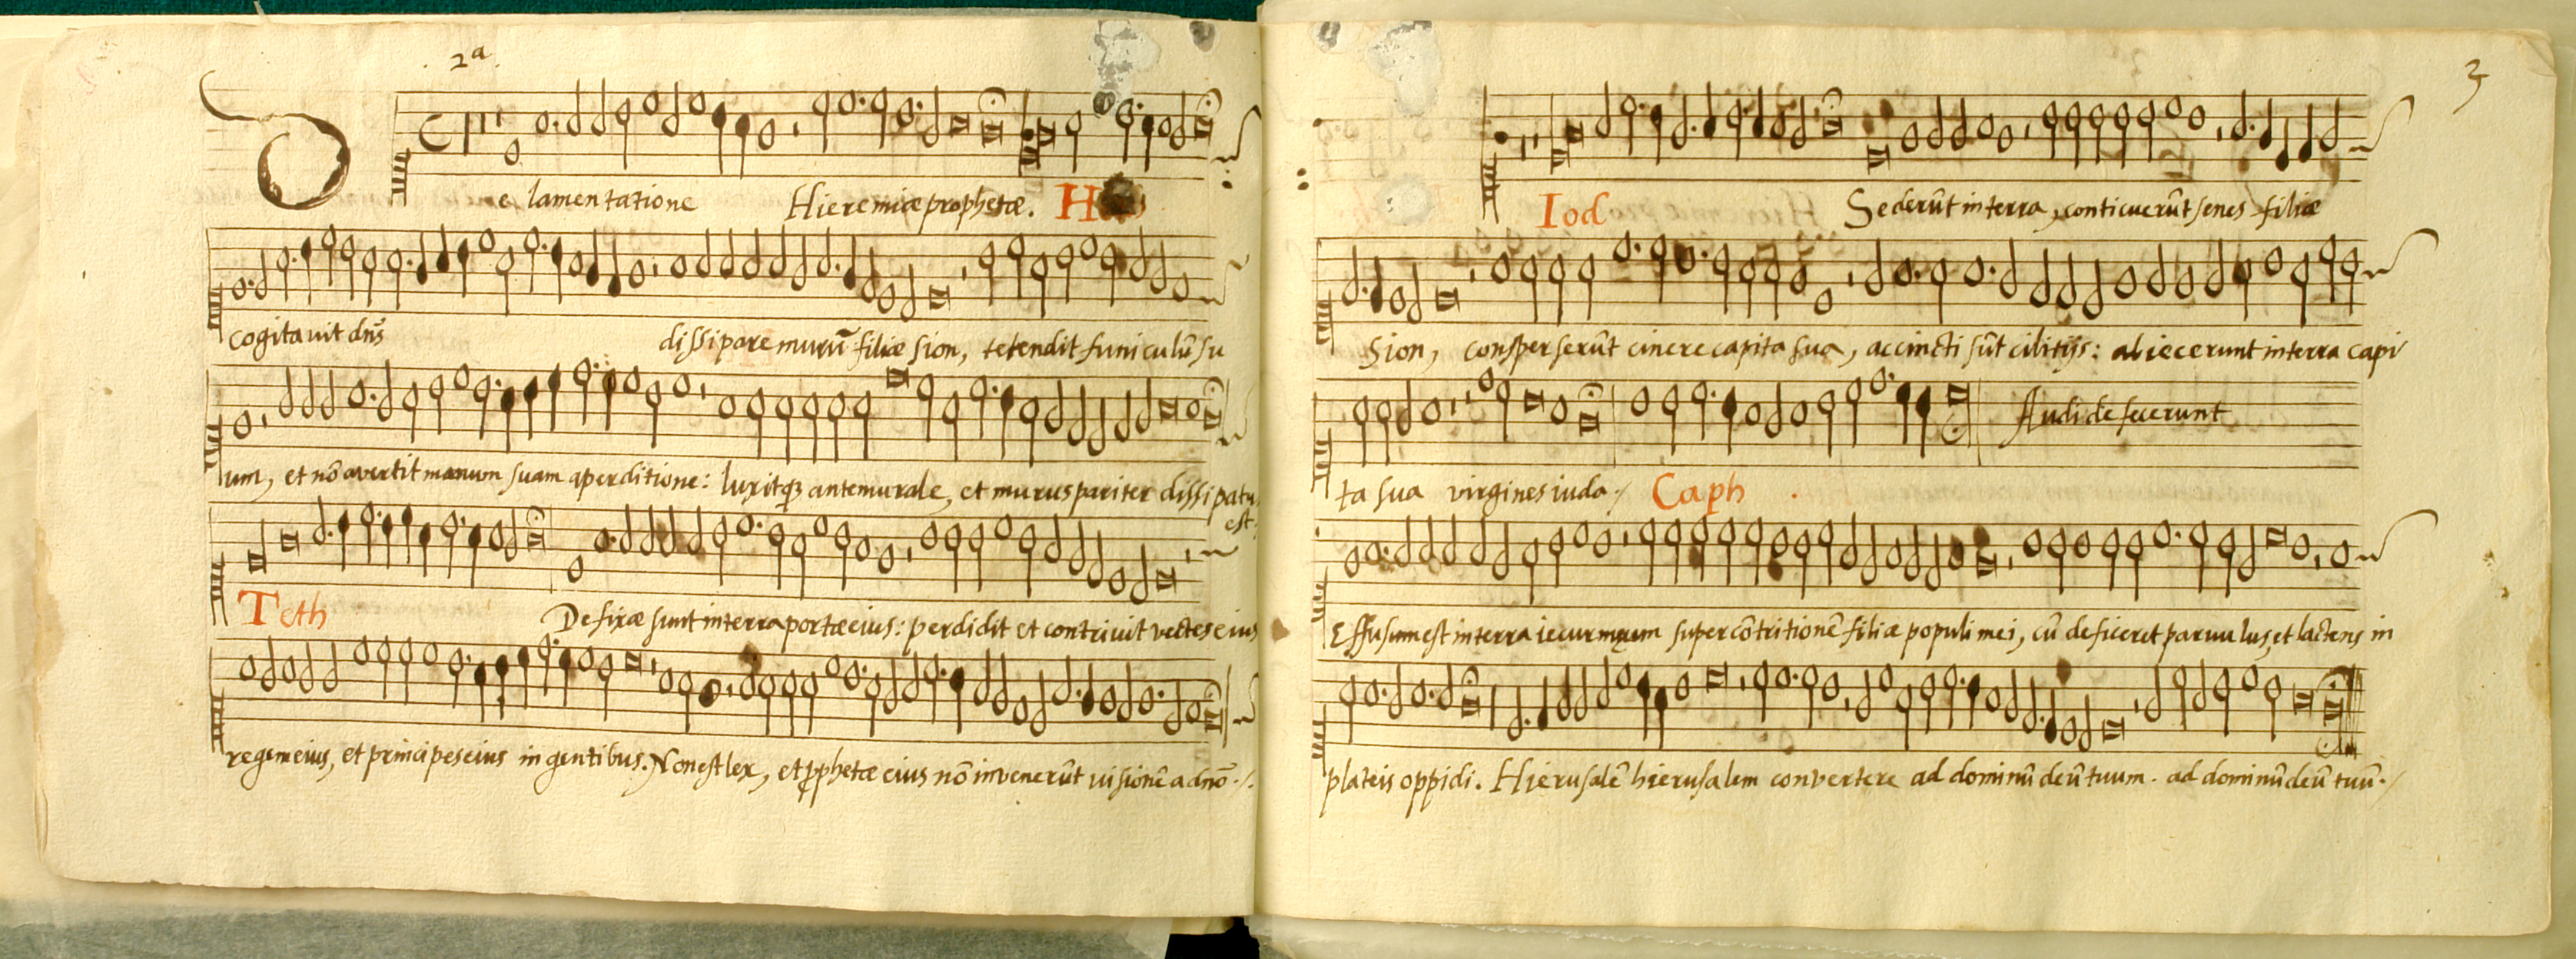 2ᵃ.
De lamentatione Hieremiæ prophetæ.
cogitavit dñs dissipare murũ filiæ sion, tetendit funiculũ su
um, et nõ avertit manum suam a perditione: luxitqꝫ antemurale, et murus pariter dissipatus
est.
Teth Defixæ sunt in terra portæ eius: perdidit et contrivit vectes eius
regem eius, et principes eius in gentibus. Non est lex, et ꝓphetæ eius nõ invenerũt visionẽ a dnõ./.
3
Iod Sederũt in terra, conticuerũt senes filiæ
Sion, consperserũt cinere capita sua, accincti sũt cilitijs: abiecerunt in terra capi
ta sua virgines iuda./ Caph . Audi defecerunt
Effusum est in terra iecur meum super cõtritionẽ filiæ populi mei, cũ deficeret parvulus, et lactens in
plateis oppidi. Hierusalẽ hierusalem convertere ad dominũ deũ tuum. ad dominũ deũ tuũ./